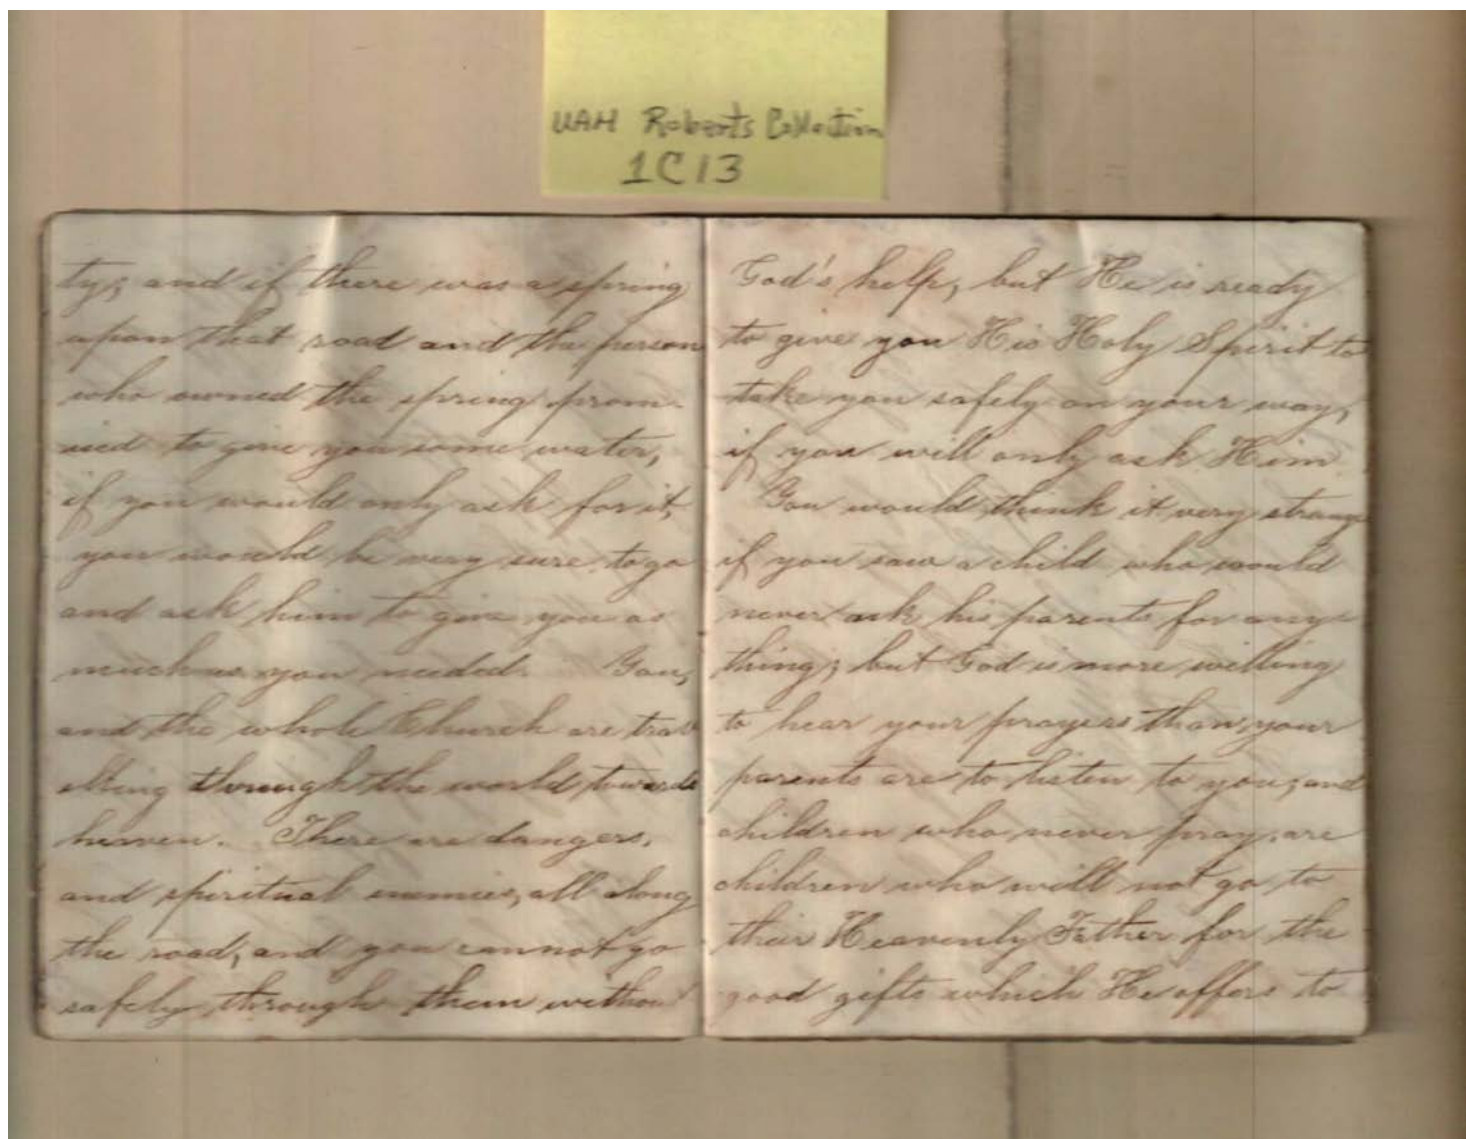 UAH Roberts Collection
1C13
ty; and if there was a spring
upon that road and the person
who owned the spring prom-
ised to give you some water,
if you would only ask for it,
you would be very sure to go
and ask him to give you as
much as you needed. You,
and the whole Church are trav
elling through the world towards
heaven. There are dangers,
and spiritual enemies, all along
the road, and you cannot go
safely through them without
God's help, but He is ready
to give you His Holy Spirit to
take you safely on your way,
if you will only ask Him.
You would think it very strange
if you saw a child who would
never ask his parents for any-
thing; but God is more willing
to hear your prayers than your
parents are to listen to you; and
children who never pray, are
children who will not go to
their Heavenly Father for the
good gifts which He offers to